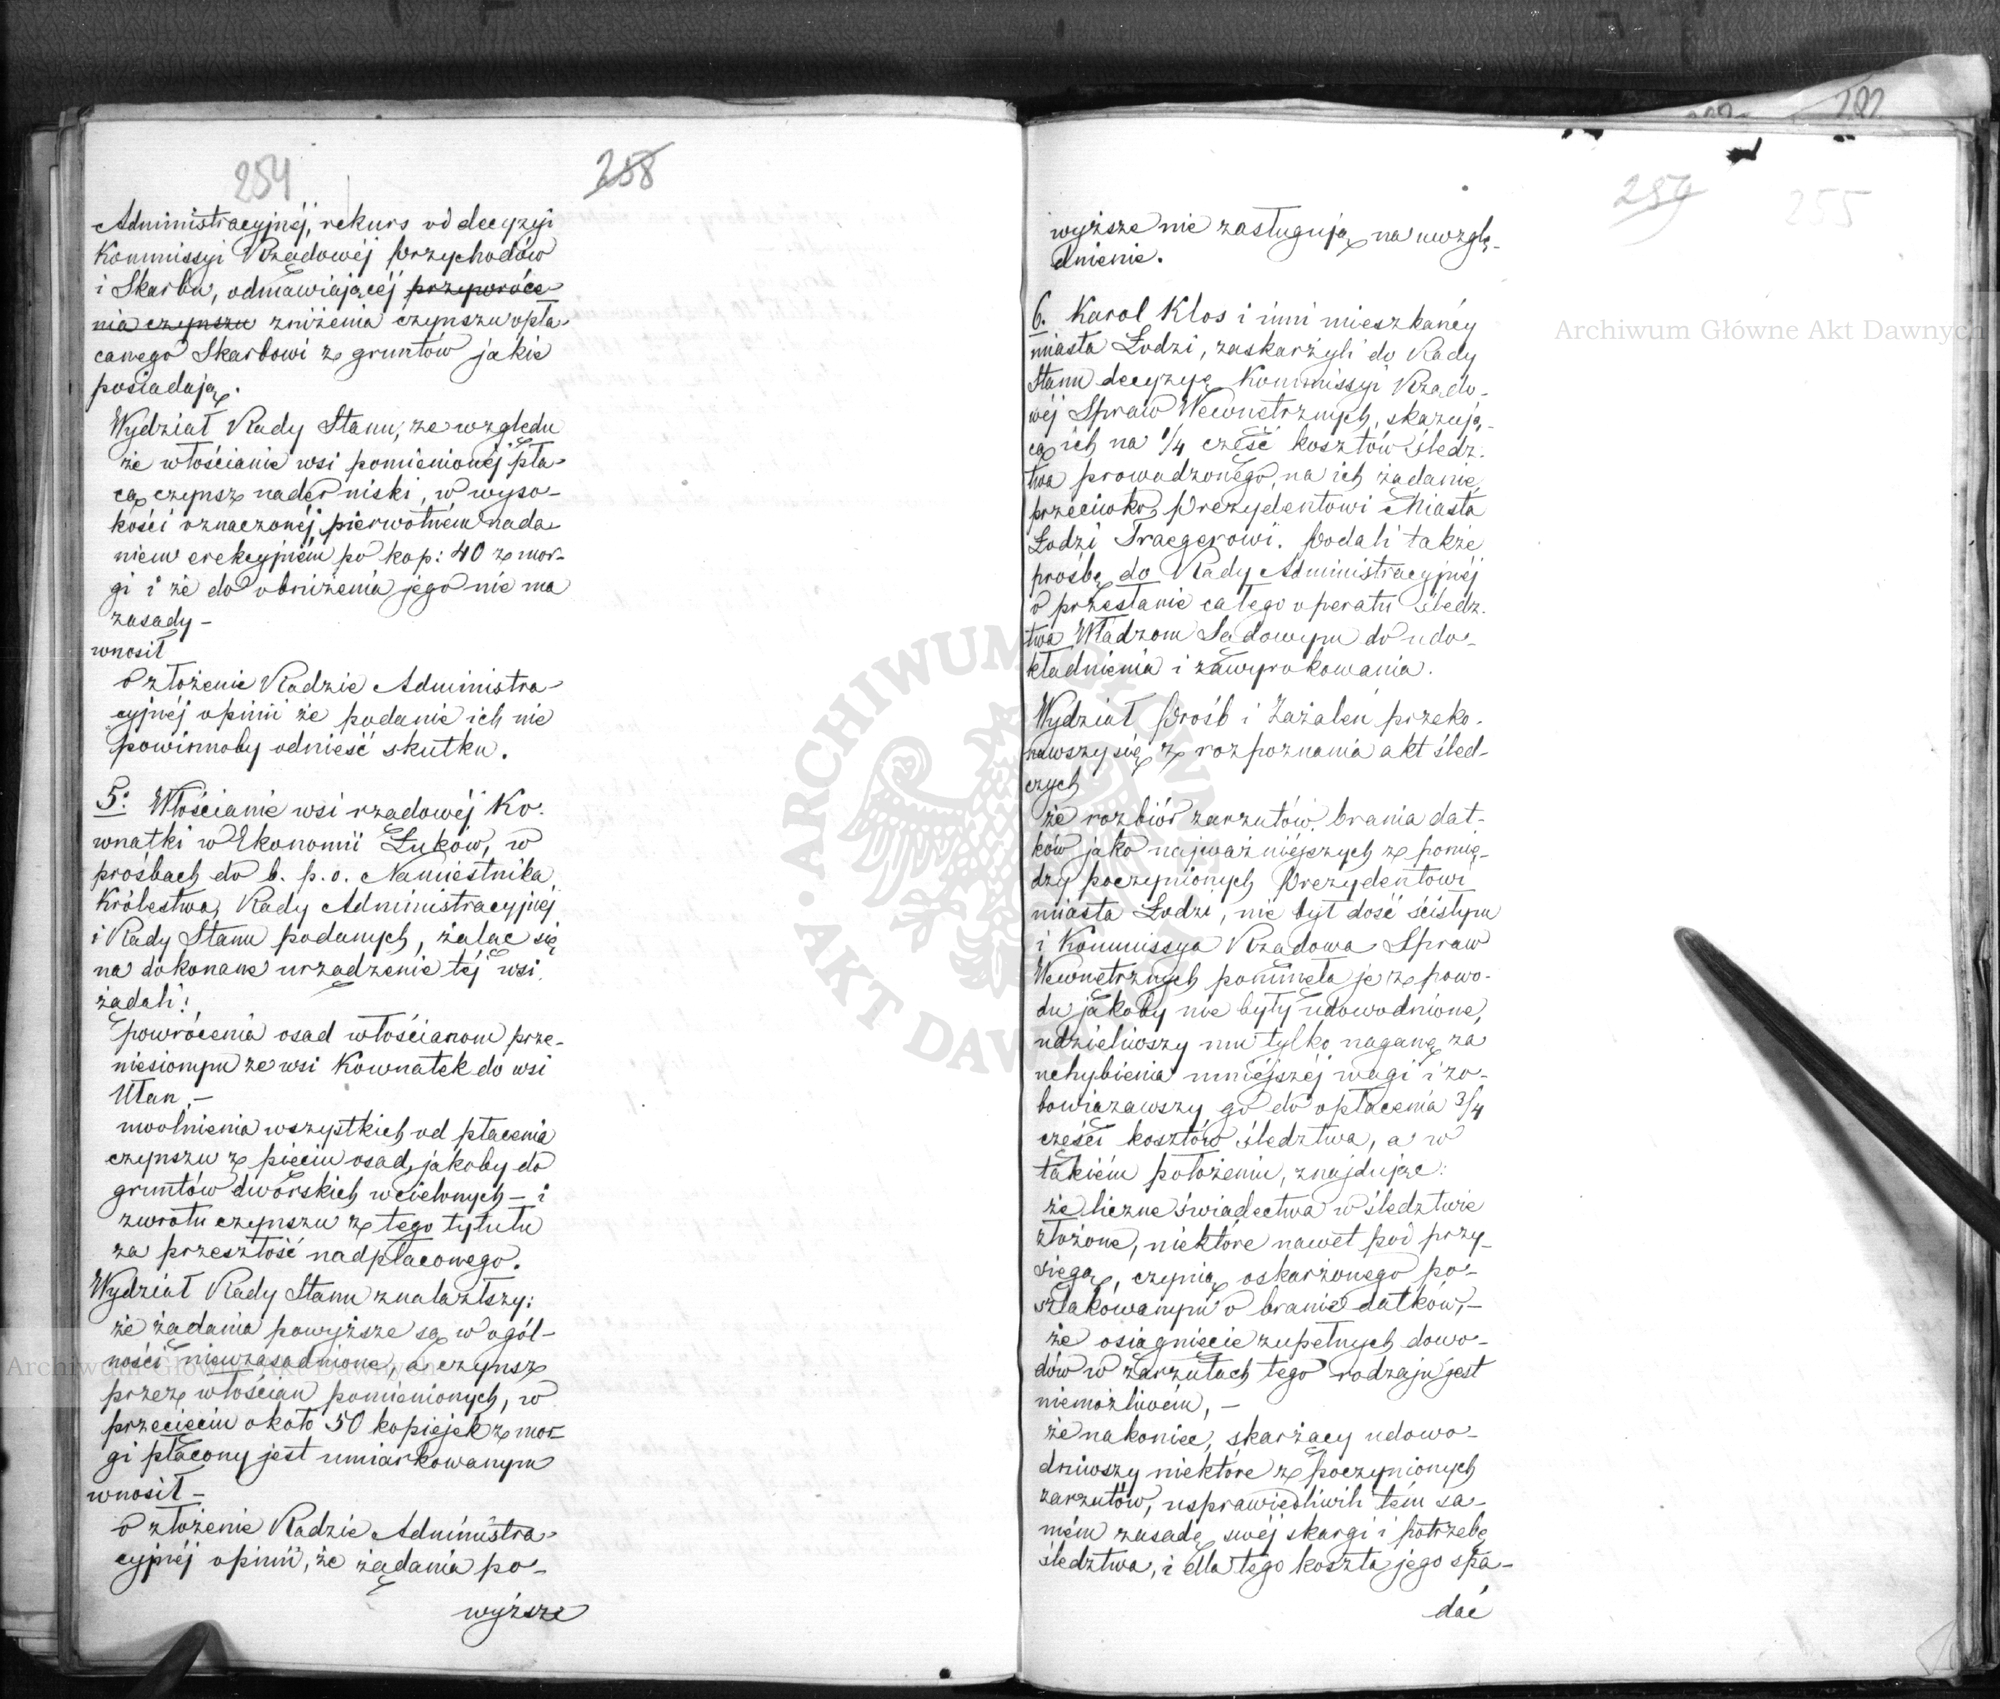 254
258
Administracyjnéj, rekurs od decyzyi
Kommissyi Rządowéj Przychodów
i Skarbu, odmawiającéj przywróce-
nia czynszu zniżenia czynszu opła-
canego Skarbowi z gruntów jakie
posiadają.
Wydział Rady Stanu, ze względu
że włościanie wsi pomienionéj pła-
cą czynsz nader niski, w wyso-
kości oznaczonéj pierwotném nada
niem erekcyjném po kop: 40 z mor-
gi i że do obniżenia jego nie ma
zasady –
wnosił
o złożenie Radzie Administra-
cyjnéj opinii że podanie ich nie
powinnoby odnieść skutku.
5. Włościanie wsi rządowéj Ko-
wnatki w Ekonomii Łuków, w
prośbach do b. p. o. Namiestnika
Królestwa, Rady Administracyjnéj
i Rady Stanu podanych, żaląc się
na dokonane urządzenie téj wsi,
żądali:
powrócenia osad włościanom prze-
niesionym ze wsi Kownatek do wsi
Ułan, –
uwolnienia wszystkich od płacenia
czynszu z pięciu osad, jakoby do
gruntów dworskich wcielonych – i
zwrotu czynszu z tego tytułu
za przeszłość nadpłaconego.
Wydział Rady Stanu znalazłszy:
że żądania powyższe są w ogól-
ności nieuzasadnione, a czynsz
przez włościan pomienionych, w
przecięciu około 50 kopiejek z mor-
gi płacony jest umiarkowanym
wnosił –
o złożenie Radzie Administra-
cyjnéj opinii, że żądania po-
wyższe
202
259
255
wyższe nie zasługują na uwzglę-
dnienie.
6. Karol Klos i inni mieszkańcy
miasta Łodzi, zaskarżyli do Rady
Stanu decyzyę Kommissyi Rządo-
wéj Spraw Wewnętrznych, skazują-
cą ich na 1/4 część kosztów śledz-
twa prowadzonego, na ich żądanie,
przeciwko Prezydentowi Miasta
Łodzi Traegerowi. Podali także
prośbę do Rady Administracyjnéj
o przesłanie całego operatu śledz-
twa Władzom Sądowym do udo-
kładnienia i zawyrokowania.
Wydział Próśb i Zażaleń przeko-
nawszy się z rozpoznania akt śled-
czych
że rozbiór zarzutów brania dat-
ków jako najważniejszych z pomię-
dzy poczynionych Prezydentowi
miasta Łodzi, nie był dość ścisłym
i Kommissya Rządowa Spraw
Wewnętrznych pominęła je z powo-
du jakoby nie były udowodnione,
udzieliwszy mu tylko naganę za
uchybienia mniejszéj wagi i zo-
bowiązawszy go do opłacenia 3/4
części kosztów śledztwa, a w
takiém położeniu, znajdując:
że liczne świadectwa w śledztwie
złożone, niektóre nawet pod przy-
sięgą, czynią oskarżonego po-
szlakowanym o branie datków, –
że osiągnięcie zupełnych dowo-
dów w zarzutach tego rodzaju jest
niemożliwém, –
że nakoniec, skarżący udowo-
dniwszy niektóre z poczynionych
zarzutów, usprawiedliwili tém sa-
mém zasadę swéj skargi i potrzebę
śledztwa, i dla tego koszta jego spa-
dać
Archiwum Główne Akt Dawnych
Archiwum Główne Akt Dawnych
ARCHIWUM GŁÓWNE AKT DAWNYCH